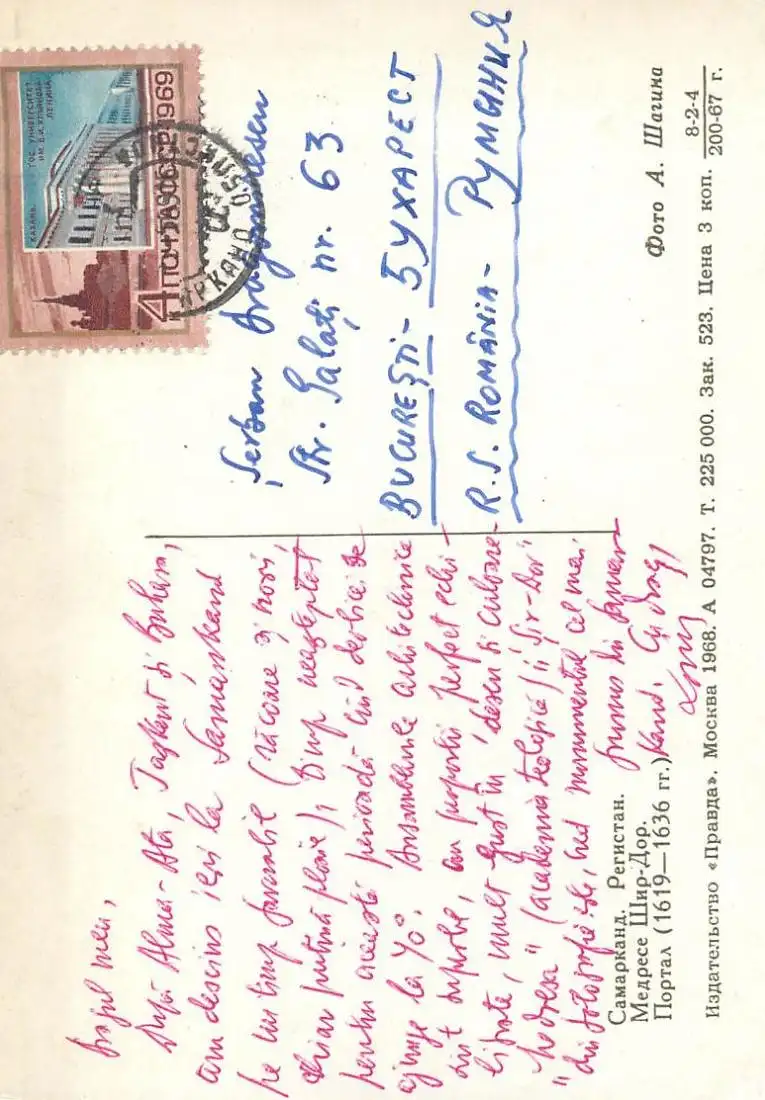 Dragul meu,
După Alma-Ata, Taşkent şi Buhara,
am descins ieri la Samarkand
pe un timp favorabil (răcoare şi nori,
chiar puţină ploaie), timp neaşteptat
pentru această perioadă când de obicei se
ajunge la 40°. Ansamblurile arhitectonice
sînt superbe, au proporţii perfect echi-
librate, mult gust în desen şi culoare.
"Medresa" (academia teologică) "Şir-Dor"
din fotografie este, cred monumentul cel mai
frumos din Samar-
kand. Cu drag,
Şerban
Str. Galaţi nr. 63
BUCUREŞTI - БУХАРЕСТ
R.S. ROMÂNIA - РУМЫНИЯ
КАЗАНЬ. ГОС. УНИВЕРСИТЕТ
ИМ. В.И. УЛЬЯНОВА-
ЛЕНИНА
4 К ПОЧТА СССР 1969
Самарканд. Регистан.
Медресе Шир-Дор.
Портал (1619—1636 гг.)
Фото А. Шагина
8-2-4
200-67 г.
Издательство «Правда». Москва 1968. А 04797. Т. 225 000. Зак. 523. Цена 3 коп.